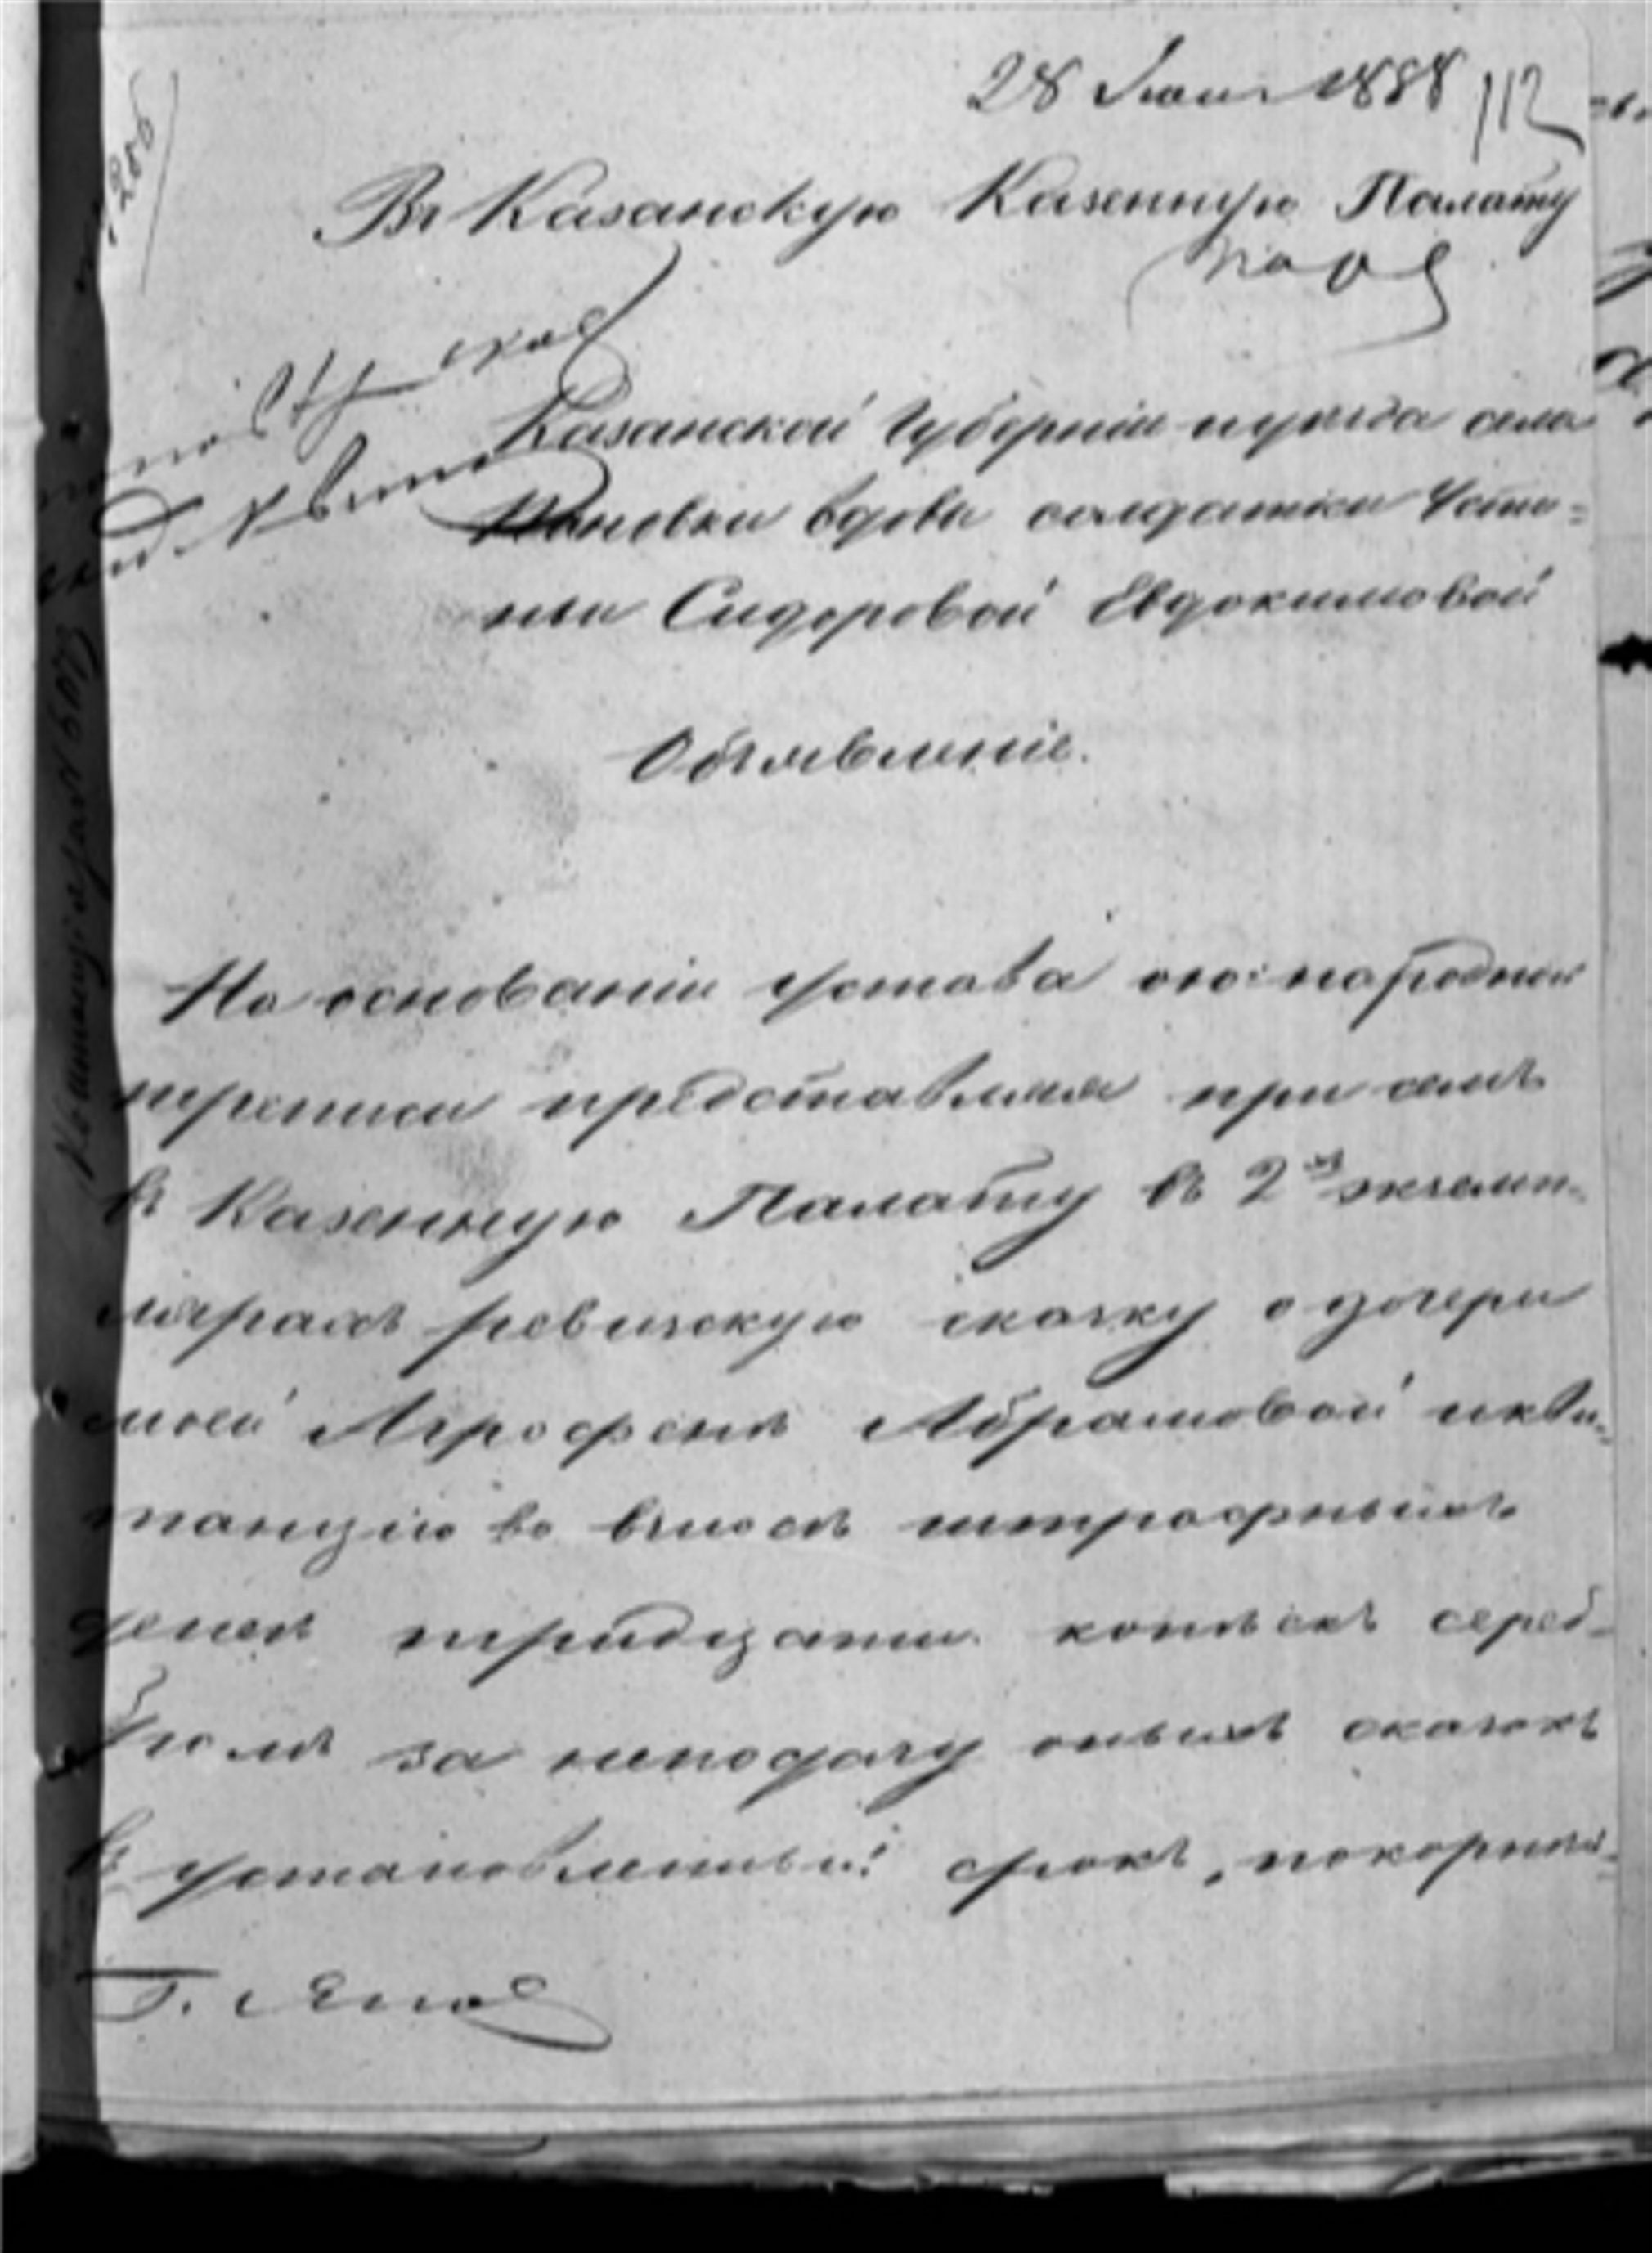 28 Іюня 1858
112
286
Въ Казанскую Казенную Палату
Казанской Губерніи уѣзда села
вдовы солдатки Усти=
ньи Сидоровой Евдокимовой
Объявленіе.
На основаніи устава о народной
переписи представляя при семъ
въ Казенную Палату въ 2хъ экземп-
лярахъ ревизскую скаску о дочери
моей Аграфенѣ Абрамовой и кви-
танцію во взносѣ штрафныхъ
денегъ тридцати копѣекъ сереб-
ромъ за неподачу оныхъ сказокъ
въ установленный срокъ, покорнѣй-